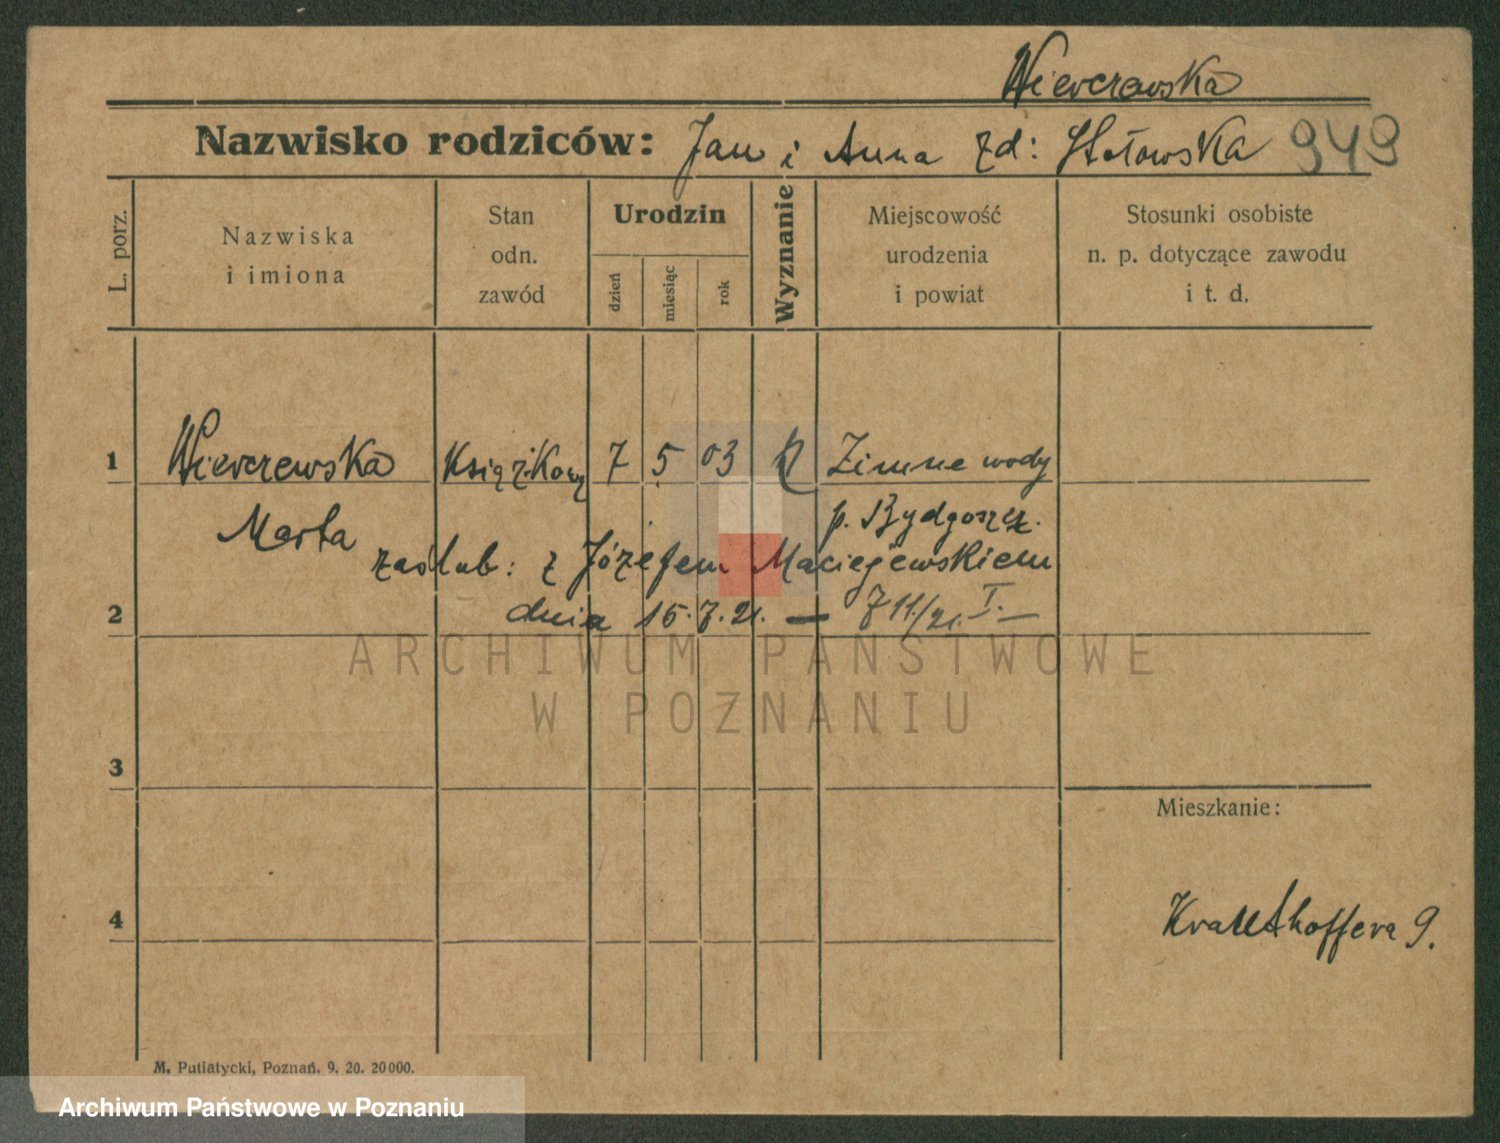 Wieverowska
Nazwisko rodziców: Jan i Anna zd: Stołowska 949
L. porz.
Nazwiska
i imiona
Stan
odn.
zawód
Urodzin
dzień
miesiąc
rok
Wyznanie
Miejscowość
urodzenia
i powiat
Stosunki osobiste
n. p. dotyczące zawodu
i t. d.
1 Książkowy 7 5 03 Zimne wody
Marta p. Bydgoszcz.
zaślub: z Józefem Maciejewskiem
2 dnia 16.7.21. — 11./21. I. —
ARCHIWUM PAŃSTWOWE
W POZNANIU
3
Mieszkanie:
4 Krauthoffera 9.
M. Putiatycki, Poznań. 9. 20. 20000.
Archiwum Państwowe w Poznaniu